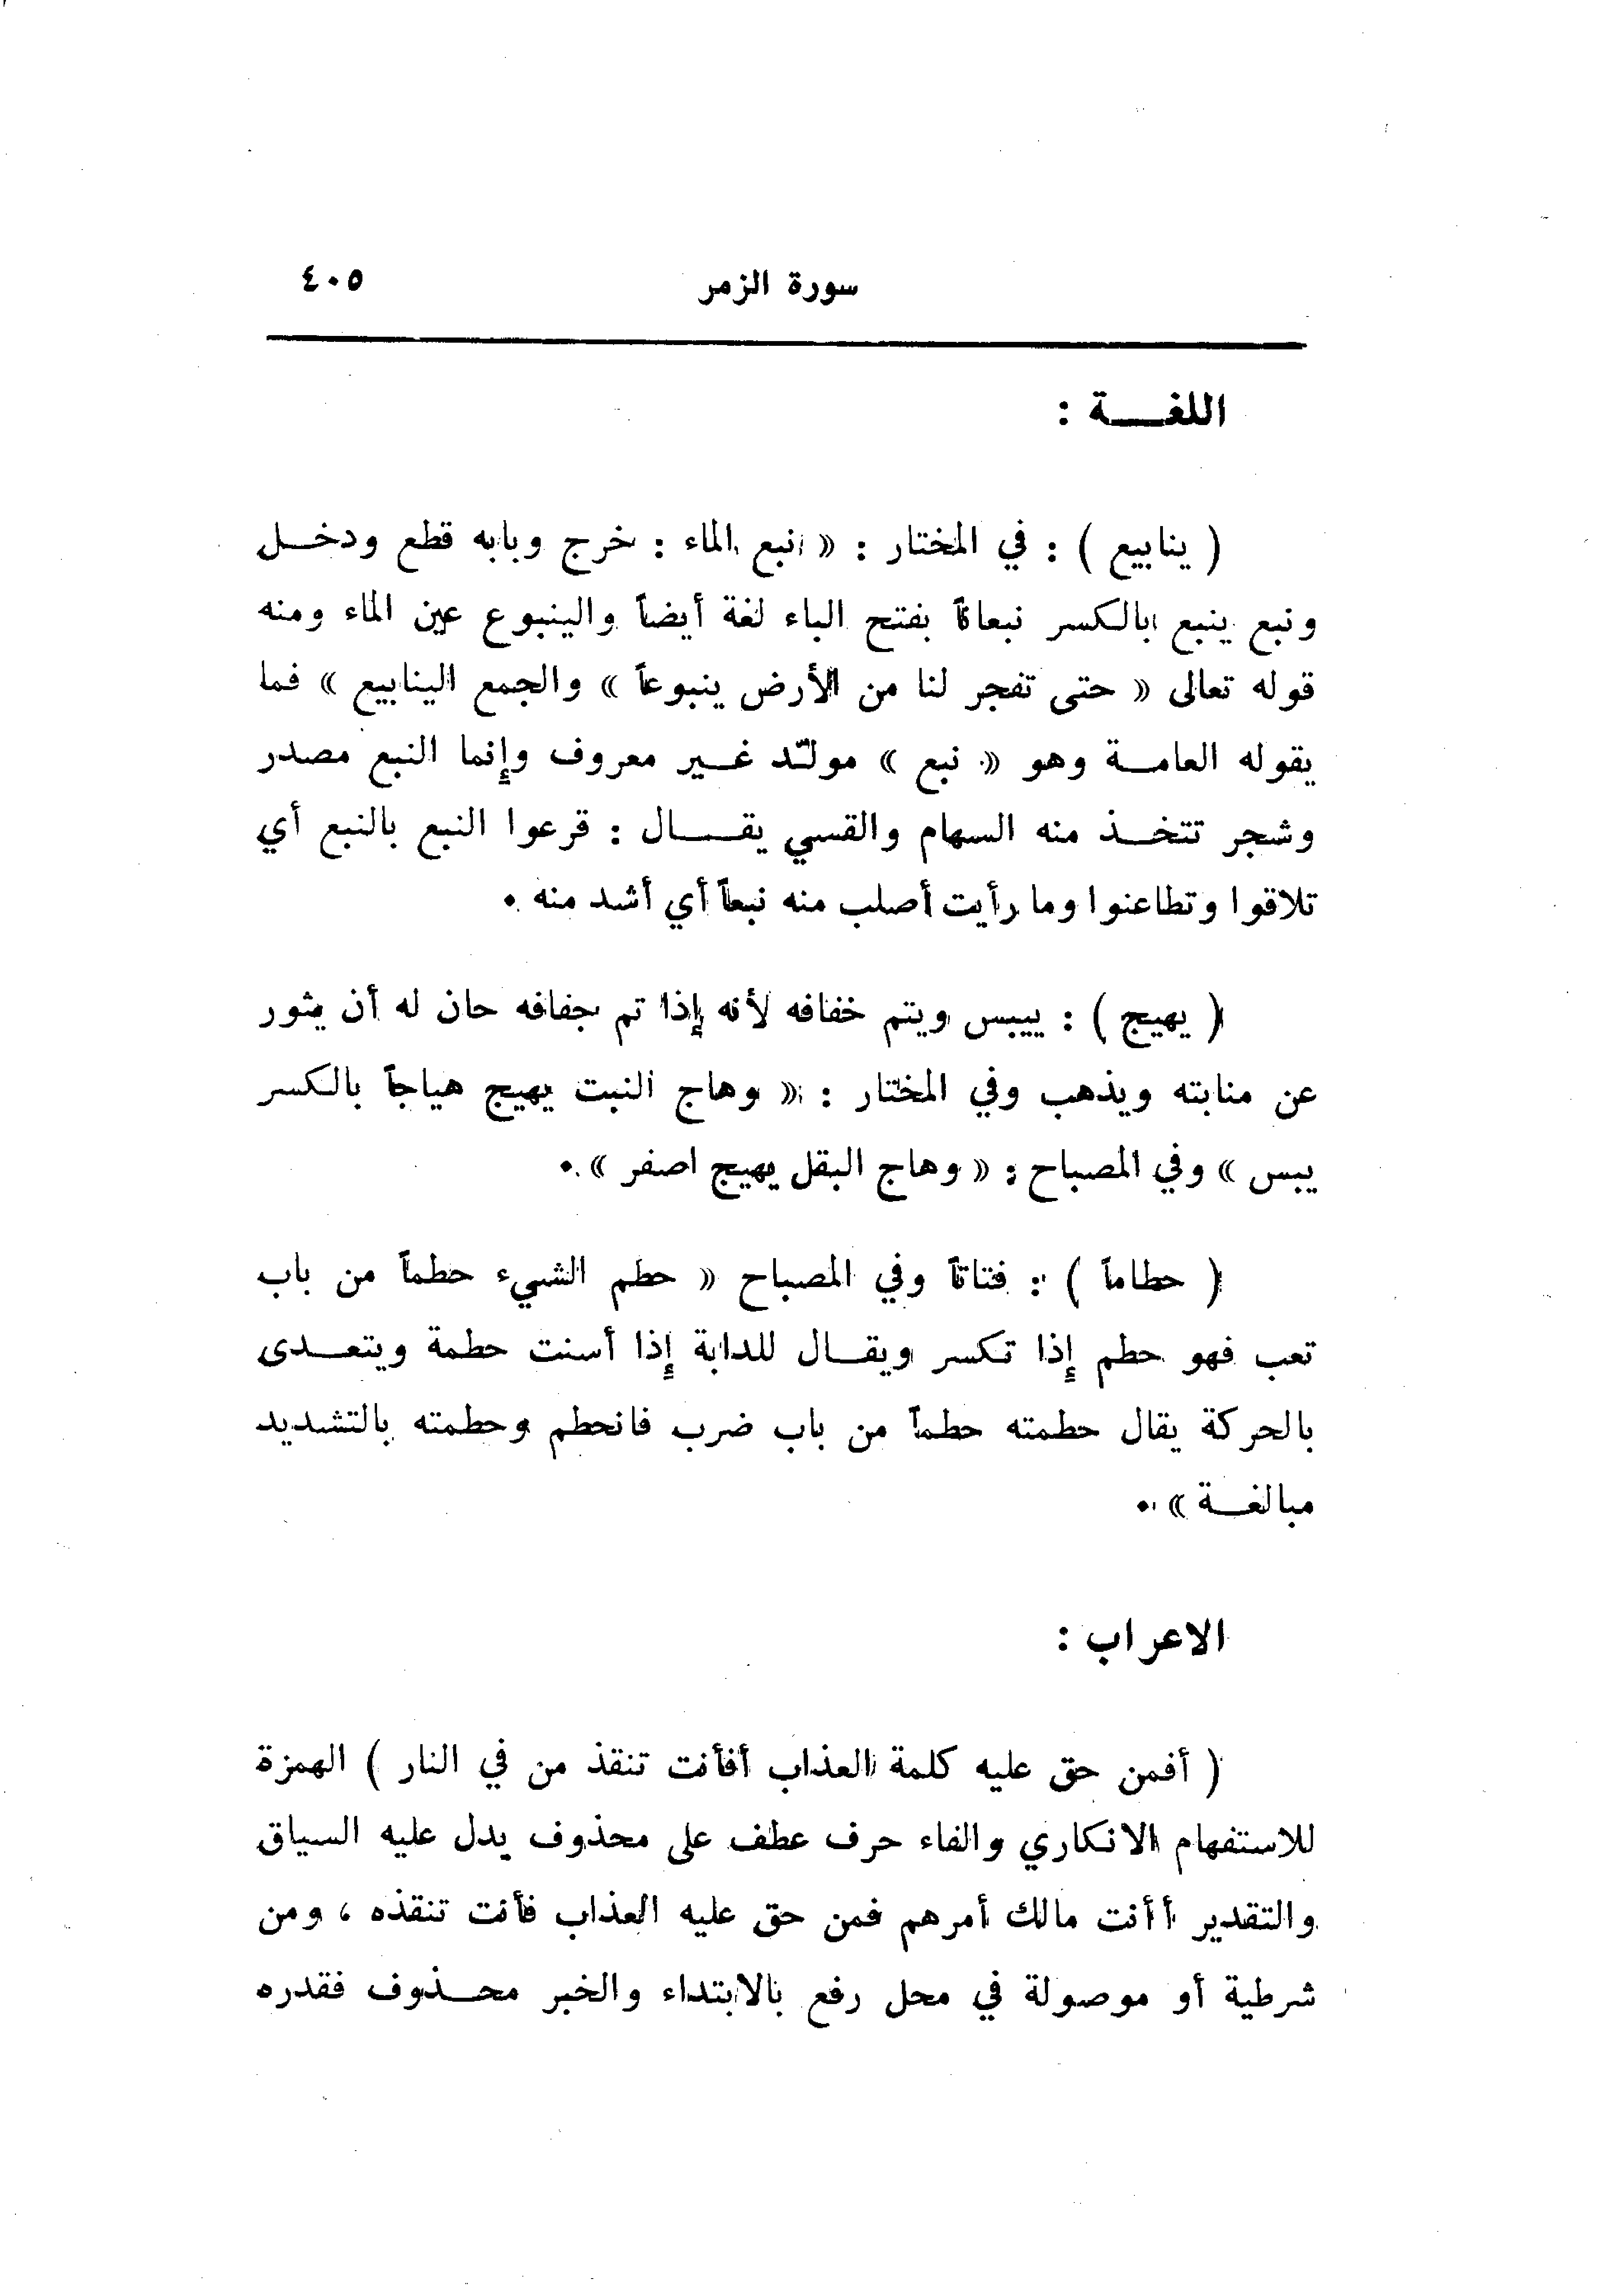 سورة الزمر ٤٠٥
اللغة :
( ينابيع ) : في المختار : « نبع الماء : خرج وبابه قطع ودخل
ونبع ينبع بالكسر نبعاناً بفتح الباء لغة أيضاً والينبوع عين الماء ومنه
قوله تعالى « حتى تفجر لنا من الأرض ينبوعاً » والجمع الينابيع » فما
يقوله العامة وهو « نبع » مولّد غير معروف وإنما النبع مصدر
وشجر تتخذ منه السهام والقسي يقال : قرعوا النبع بالنبع أي
تلاقوا وتطاعنوا وما رأيت أصلب منه نبعاً أي أشد منه .
( يهيج ) : ييبس ويتم خفافه لأنه إذا تم جفافه حان له أن يثور
عن منابته ويذهب وفي المختار : « وهاج النبت يهيج هياجاً بالكسر
يبس » وفي المصباح : « وهاج البقل يهيج اصفر » .
( حطاماً ) : فتاتاً وفي المصباح « حطم الشيء حطماً من باب
تعب فهو حطم إذا تكسر ويقال للدابة إذا أسنت حطمة ويتعدى
بالحركة يقال حطمته حطماً من باب ضرب فانحطم وحطمته بالتشديد
مبالغة » .
الاعراب :
( أفمن حق عليه كلمة العذاب أفأنت تنقذ من في النار ) الهمزة
للاستفهام الانكاري والفاء حرف عطف على محذوف يدل عليه السياق
والتقدير أأنت مالك أمرهم فمن حق عليه العذاب فأنت تنقذه ، ومن
شرطية أو موصولة في محل رفع بالابتداء والخبر محذوف فقدره